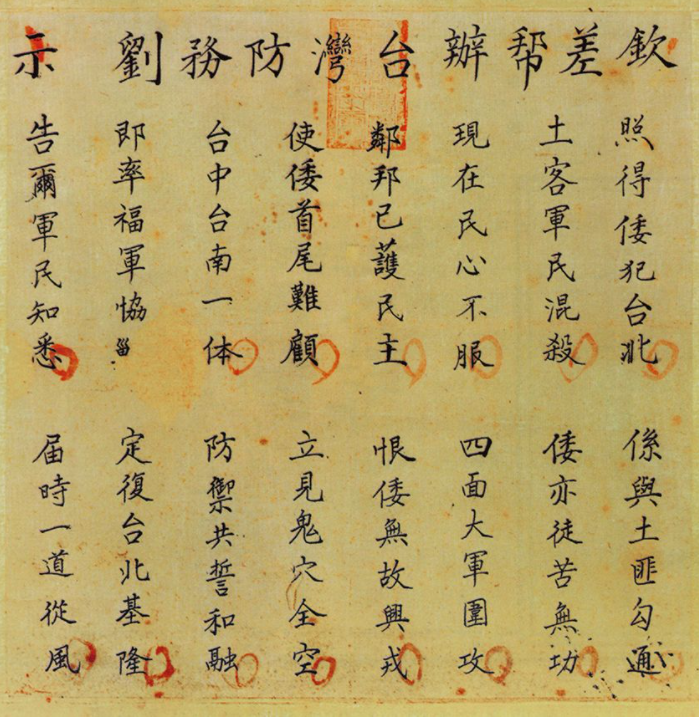 欽差帮辦台灣防務劉 示
照得倭犯台北 係與土匪勾通
土客軍民混殺 倭亦徒苦無功
現在民心不服 四面大軍圍攻
鄰邦已護民主 恨倭無故興戎
使倭首尾難顧 立見鬼穴全空
台中台南一体 防禦共誓和融
即率福軍恊 定復台北基隆
告爾軍民知悉 届時一道從風